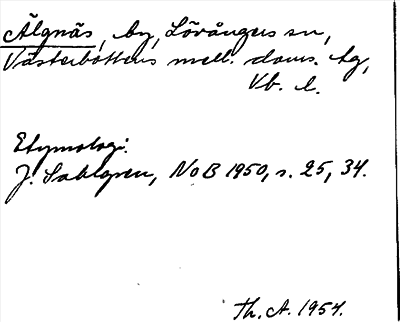 Älgnäs, by, Lövångers sn,
Västerbottens mell. doms. tg,
Vb. l.
Etymologi.
J. Sahlgren, NoB 1950, s. 25, 34.
Th. A. 1954.